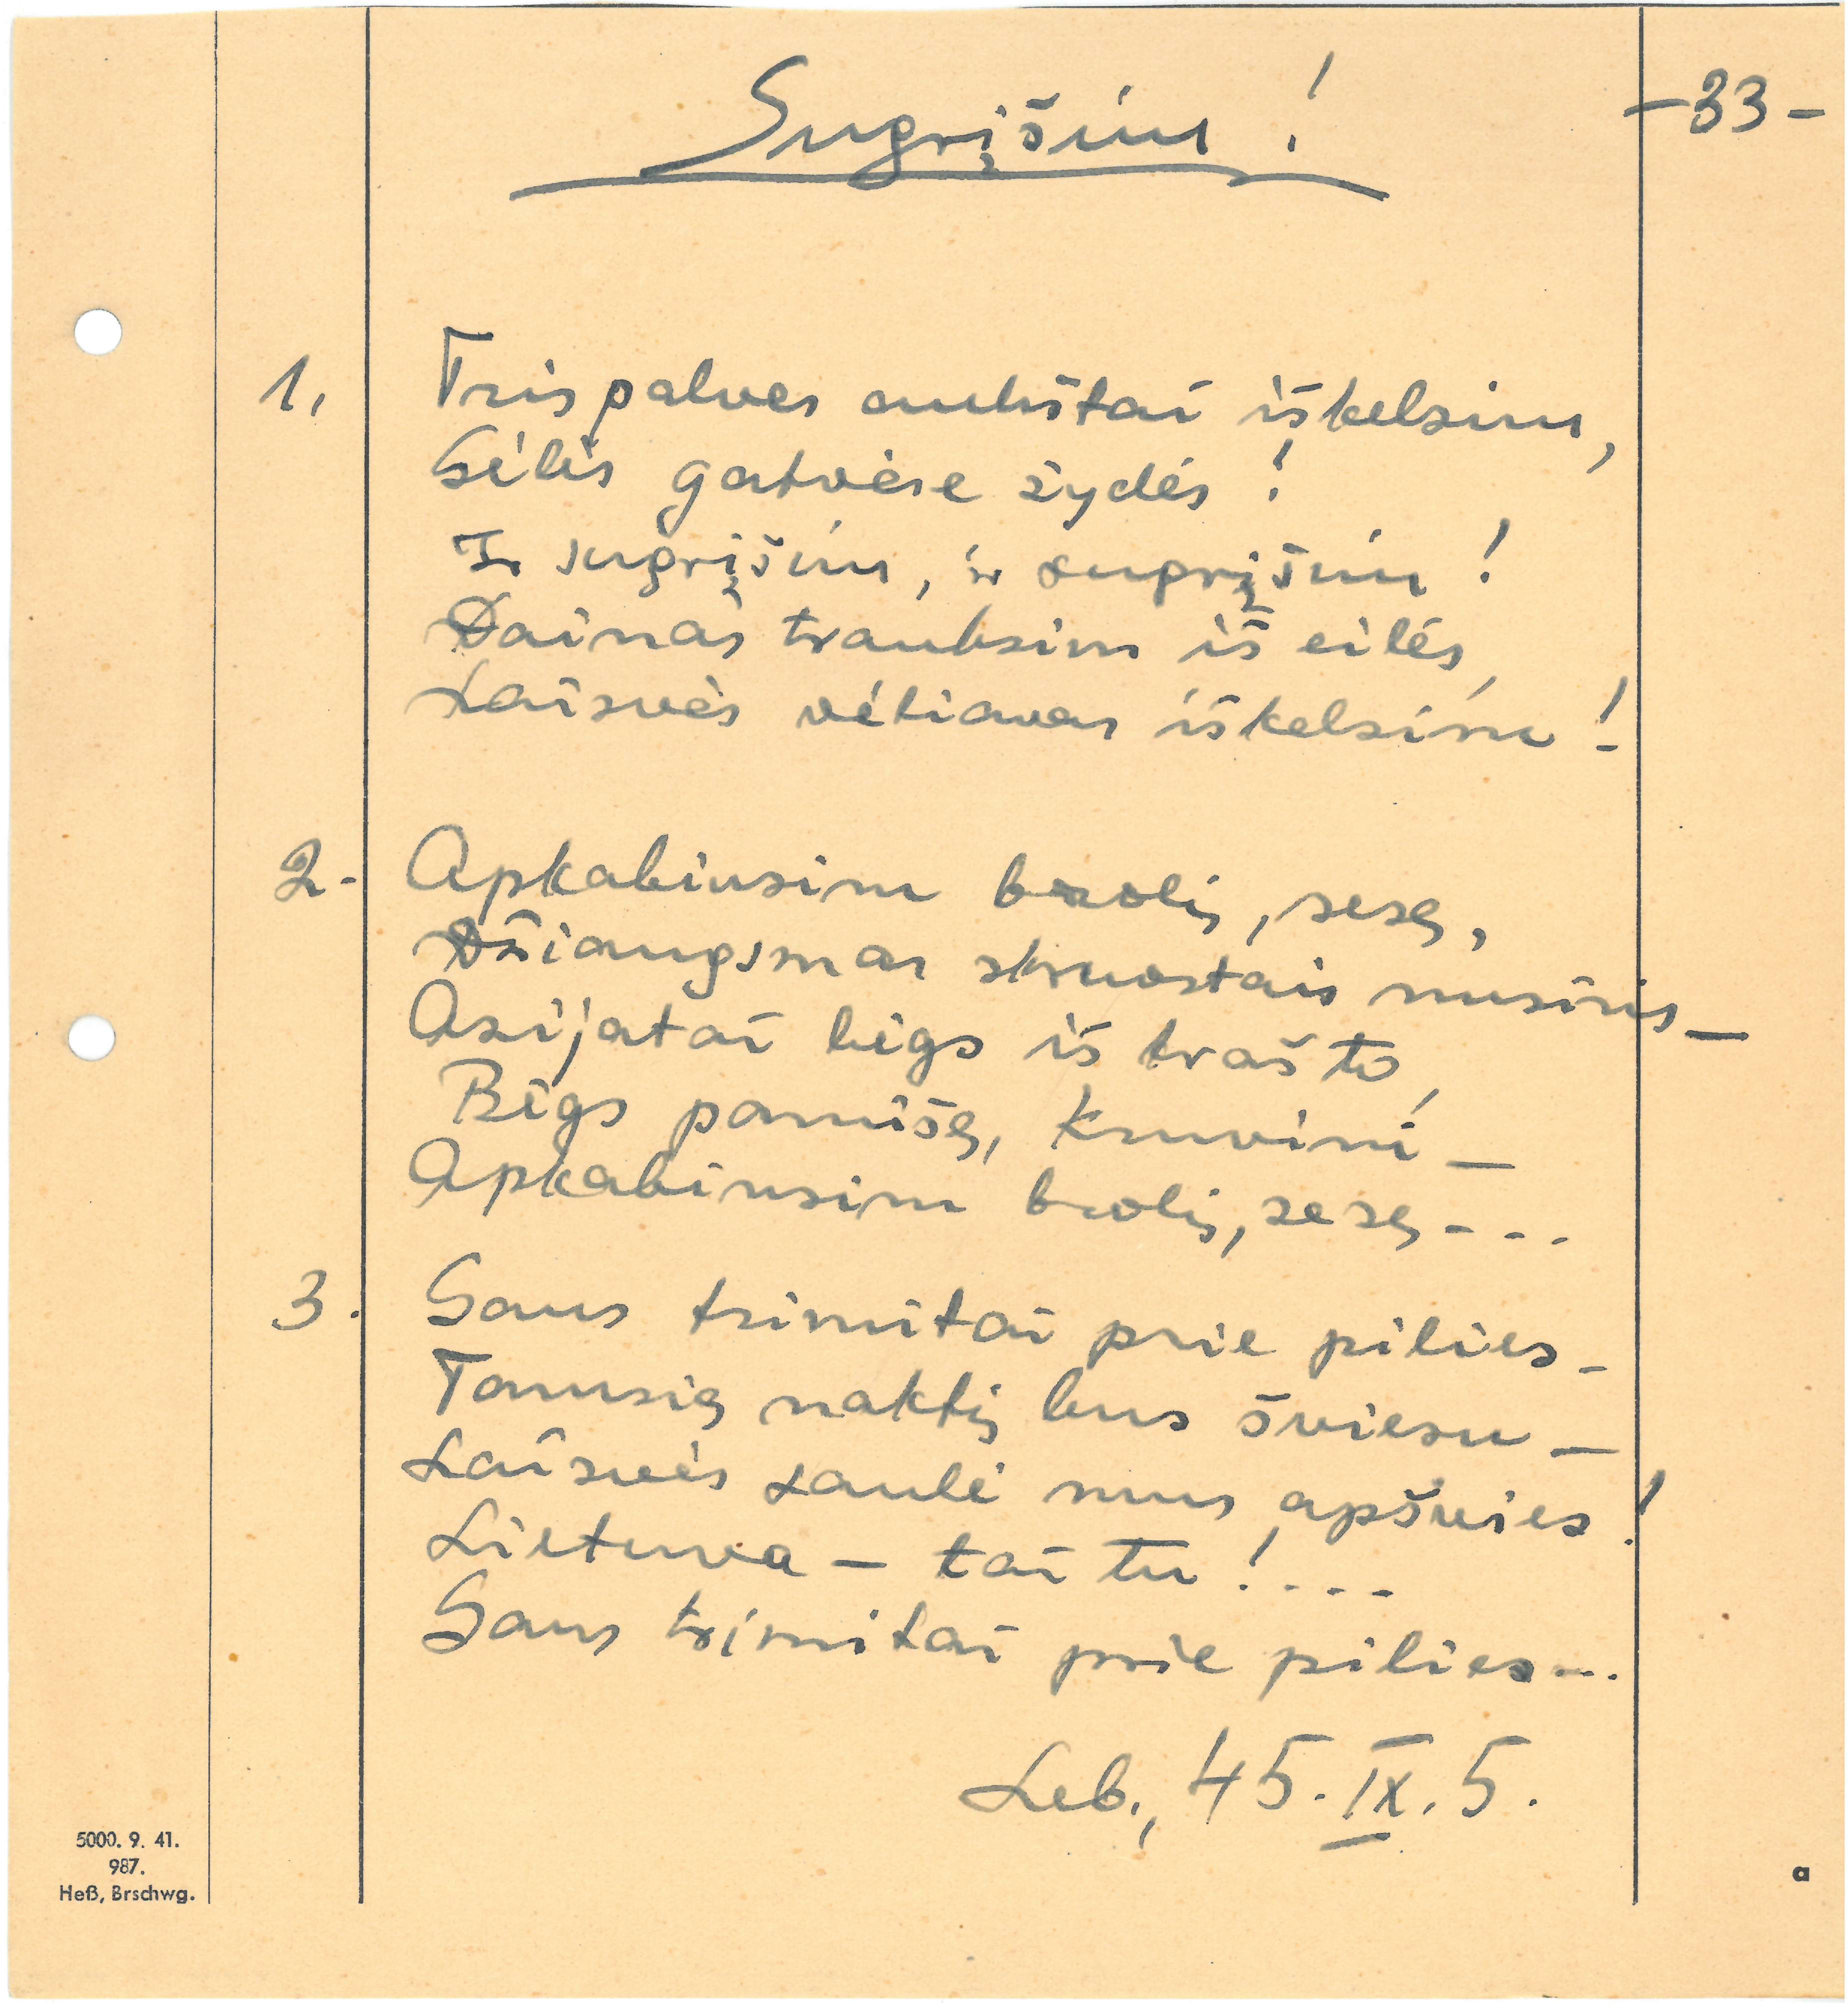 -33-
Sugrįšim!
1. Trispalves aukštai iškelsim,
Gėlės gatvėse žydės!
Ir sugrįšim, ir sugrįšim!
Dainas trauksim iš eilės,
Laisvės vėliavas iškelsim!
2. Apkabinsim brolį, sesę,
Džiaugsmas skruostais nusiris—
Azijatai bėgs iš krašto,
Bėgs pamišę, kruvini—
Apkabinsim brolį, sesę---
3. Gaus trimitai prie pilies-
Tamsią naktį bus šviesu—
Laisvės saulė mus apšvies!
Lietuva — tai tu!...
Gaus trimitai prie pilies...
Leb., 45.IX.5.
5000. 9. 41.
987.
Heß, Brschwg.
a